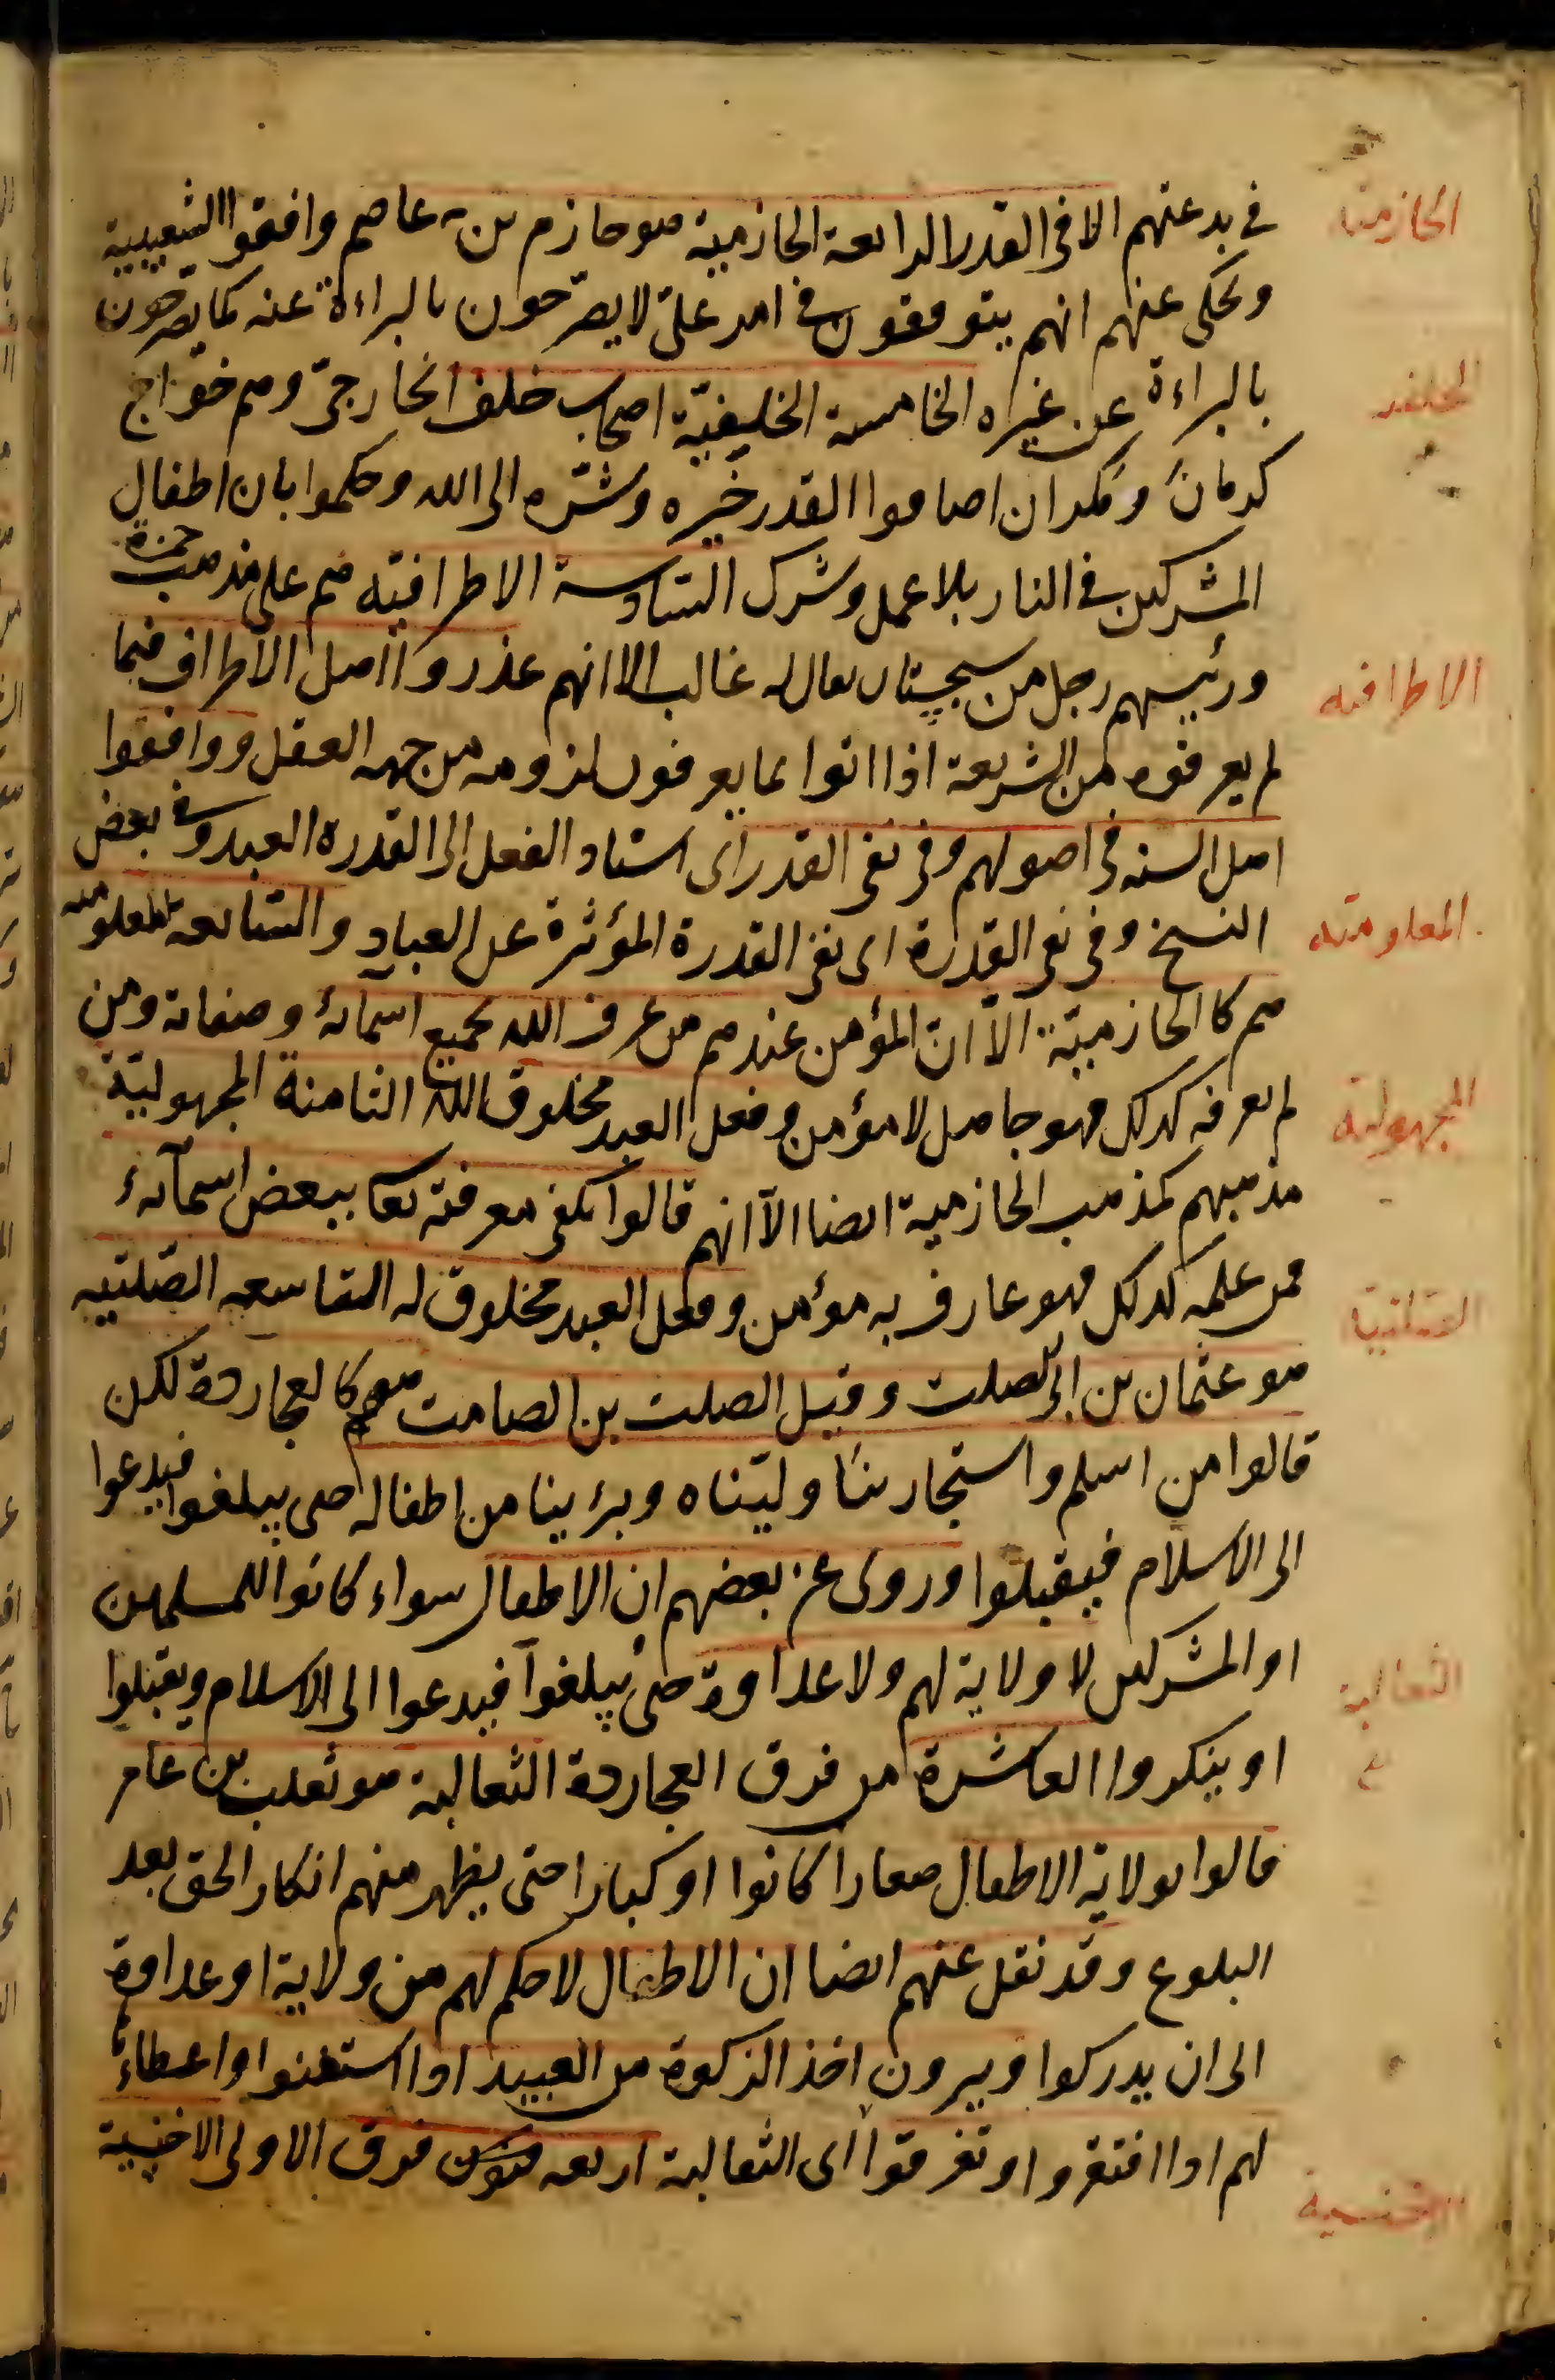 في بدعتهم الا في القدر الرابعة الحازمية هو حازم بن عاصم وافقوا الشعيبية
ويحكى عنهم انهم يتوقفون في امر علي لا يصرّحون بالبراءة عنه كما يصرحون
بالبراءة عن غيره الخامسة الخليفيّة اصحاب خلف الخارجيّ وهم خوارج
كرمان ومكران اضافوا القدر خيره وشرّه الى الله وحكموا بان اطفال
المشركين في النار بلا عمل وشرك السّادسة الاطرافيّه هم على مذهب حمزة
ورئيسهم رجل من سجستان يقال له غالب الا انهم عذروا اهل الاطراف فيما
لم يعرفوه من الشريعة اذا اتوا بما يعرفون لزومه من جهه العقل ووافقوا
اهل السنه في اصولهم وفي نفي القدر اى اسناد الفعل الى القدره العبد وفي بعض
النسخ وفي نفي القدرة اى نفي القدرة المؤثرة عن العباد والسّابعه المعلوميه
هم كالحازميّة الاّ ان المؤمن عندهم من عرف الله بجميع اسمآئه وصفاته ومن
لم يعرفه كذلك فهو جاهل لا مؤمن وفعل العبد مخلوق لله الثامنة المجهوليّة
مذهبهم كمذهب الحازمية ايضا الآ انهم قالوا يكفي معرفته تعا ببعض اسمآئه
فمن علمه كذلك فهو عارف به مؤمن وفعل العبد مخلوق له التاسعه الصّلتيه
هو عثمان بن ابى الصلت وقيل الصلت بن الصامت هم كالعجاردة لكن
قالوا من اسلم واستجار بنا ولّيناه وبرئنا من اطفاله حتى يبلغوا فيدعوا
الى الاسلام فيقبلوا وروى عن بعضهم ان الاطفال سواء كانوا للمسلمين
او المشركين لا ولاية لهم ولا عداوة حتى يبلغوا فيدعوا الى الاسلام ويقبلوا
او ينكروا العاشرة من فرق العجاردة الثعالبة هو ثعلب بن عامر
قالوا بولاية الاطفال صغارا كانوا او كبارا حتى يظهر منهم انكار الحق بعد
البلوغ وقد نقل عنهم ايضا ان الاطفال لا حكم لهم من ولاية او عداوة
الى ان يدركوا ويرون اخذ الزكوة من العبيد اذا استغنوا واعطاءها
لهم اذا افتقروا وتفرقوا اى الثعالبة اربعه فرق الاولى الاخنسية
الحازمية
الخلفيه
الاطرافيه
المعلوميه
المجهولية
الصلتية
الثعالبة
الاخنسية